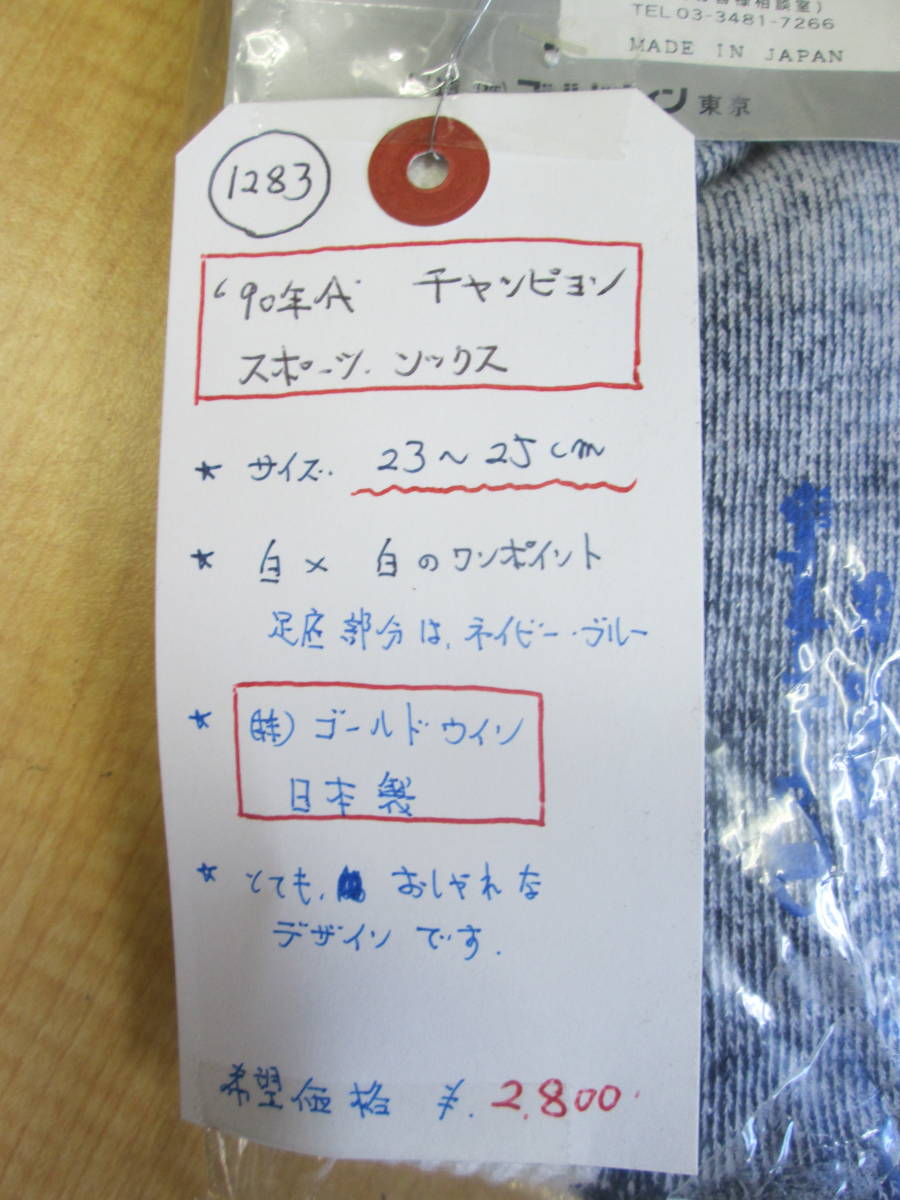 TEL 03-3481-7266
MADE IN JAPAN
東京
1283
'90年代 チャンピヨン
スポーツ.ソックス
★ サイズ. 23~25cm
★ 白×白のワンポイント
足底部分は、ネイビー・ブルー
★ (株)ゴールドウイン
日本製
★ とても、おしゃれな
デザインです.
希望価格 ¥.2,800.